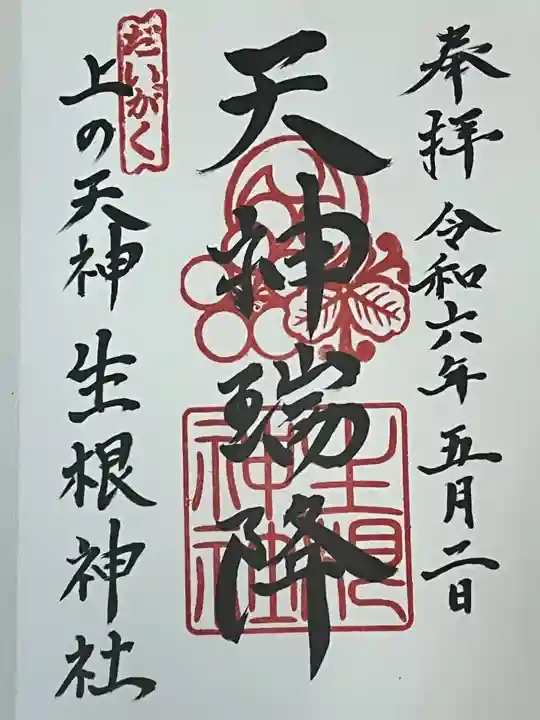 奉拝 令和六年五月二日
天神瑞降
だいがく
上の天神 生根神社
生根神社